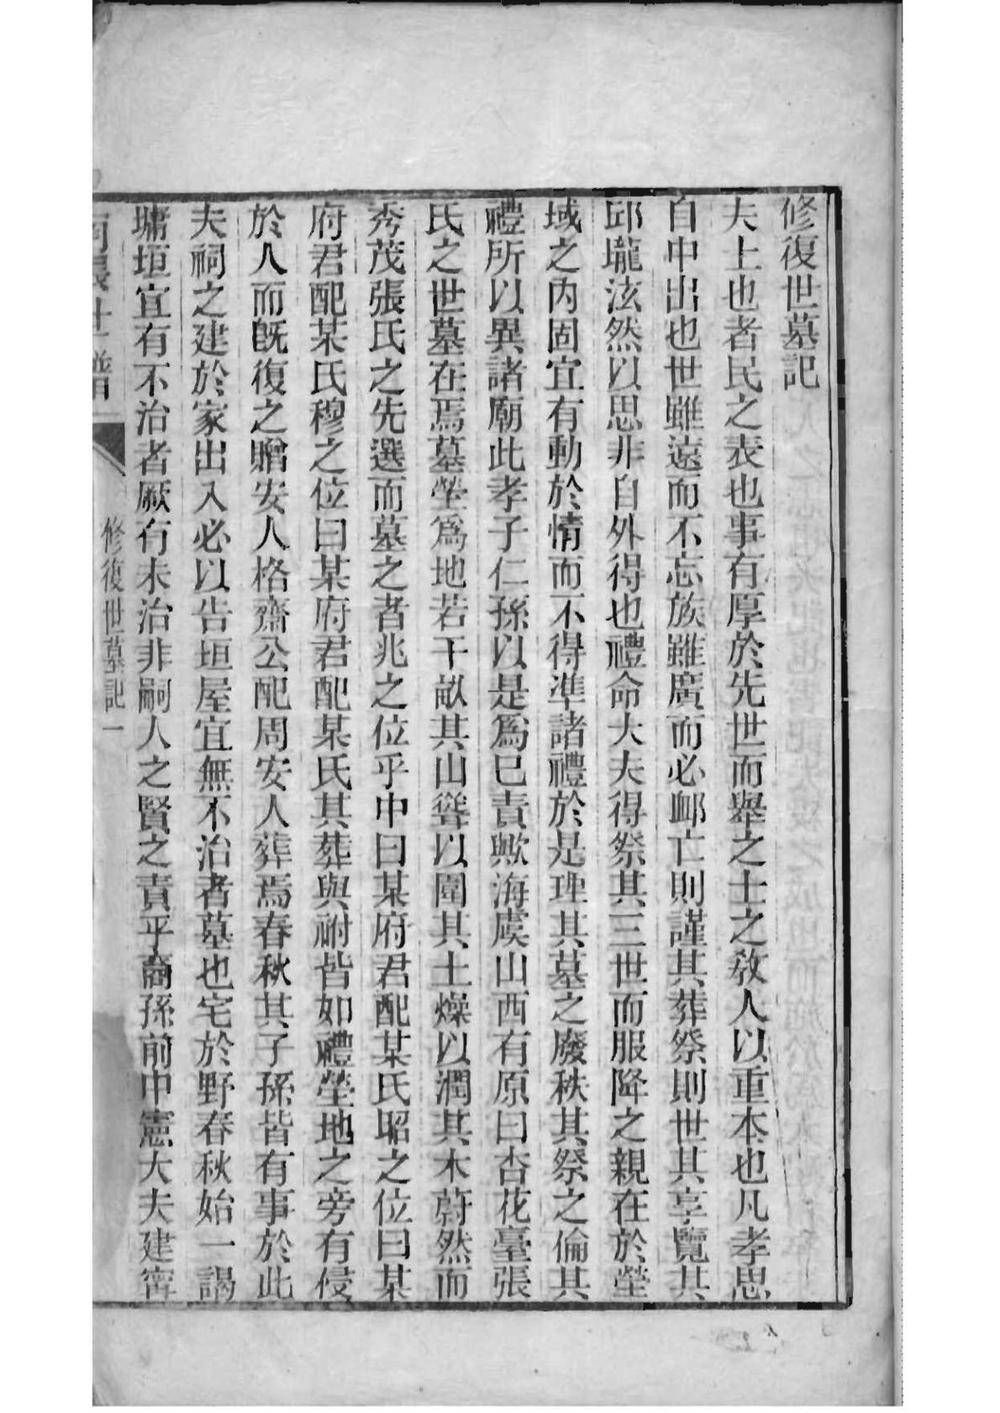 修復世墓記
夫上也者民之表也事有厚於先世而舉之士之敎人以重本也凡孝思
自中出也世雖遠而不忘族雖廣而必卹亡則謹其葬祭則世其享覽其
邱壠泫然以思非自外得也禮命大夫得祭其三世而服降之親在於塋
域之內固宜有動於情而不得準諸禮於是理其墓之廢秩其祭之倫其
禮所以異諸廟此孝子仁孫以是爲已責歟海虞山西有原曰杏花臺張
氏之世墓在焉墓塋爲地若干畝其山聳以圍其土燥以潤其木蔚然而
秀茂張氏之先選而墓之者兆之位乎中曰某府君配某氏昭之位曰某
府君配某氏穆之位曰某府君配某氏其葬與祔皆如禮塋地之旁有侵
於人而旣復之贈安人格齋公配周安人葬焉春秋其子孫皆有事於此
夫祠之建於家出入必以告垣屋宜無不治者墓也宅於野春秋始一謁
墉垣宜有不治者厥有未治非嗣人之賢之責乎裔孫前中憲大夫建寧
世譜
修復世墓記一